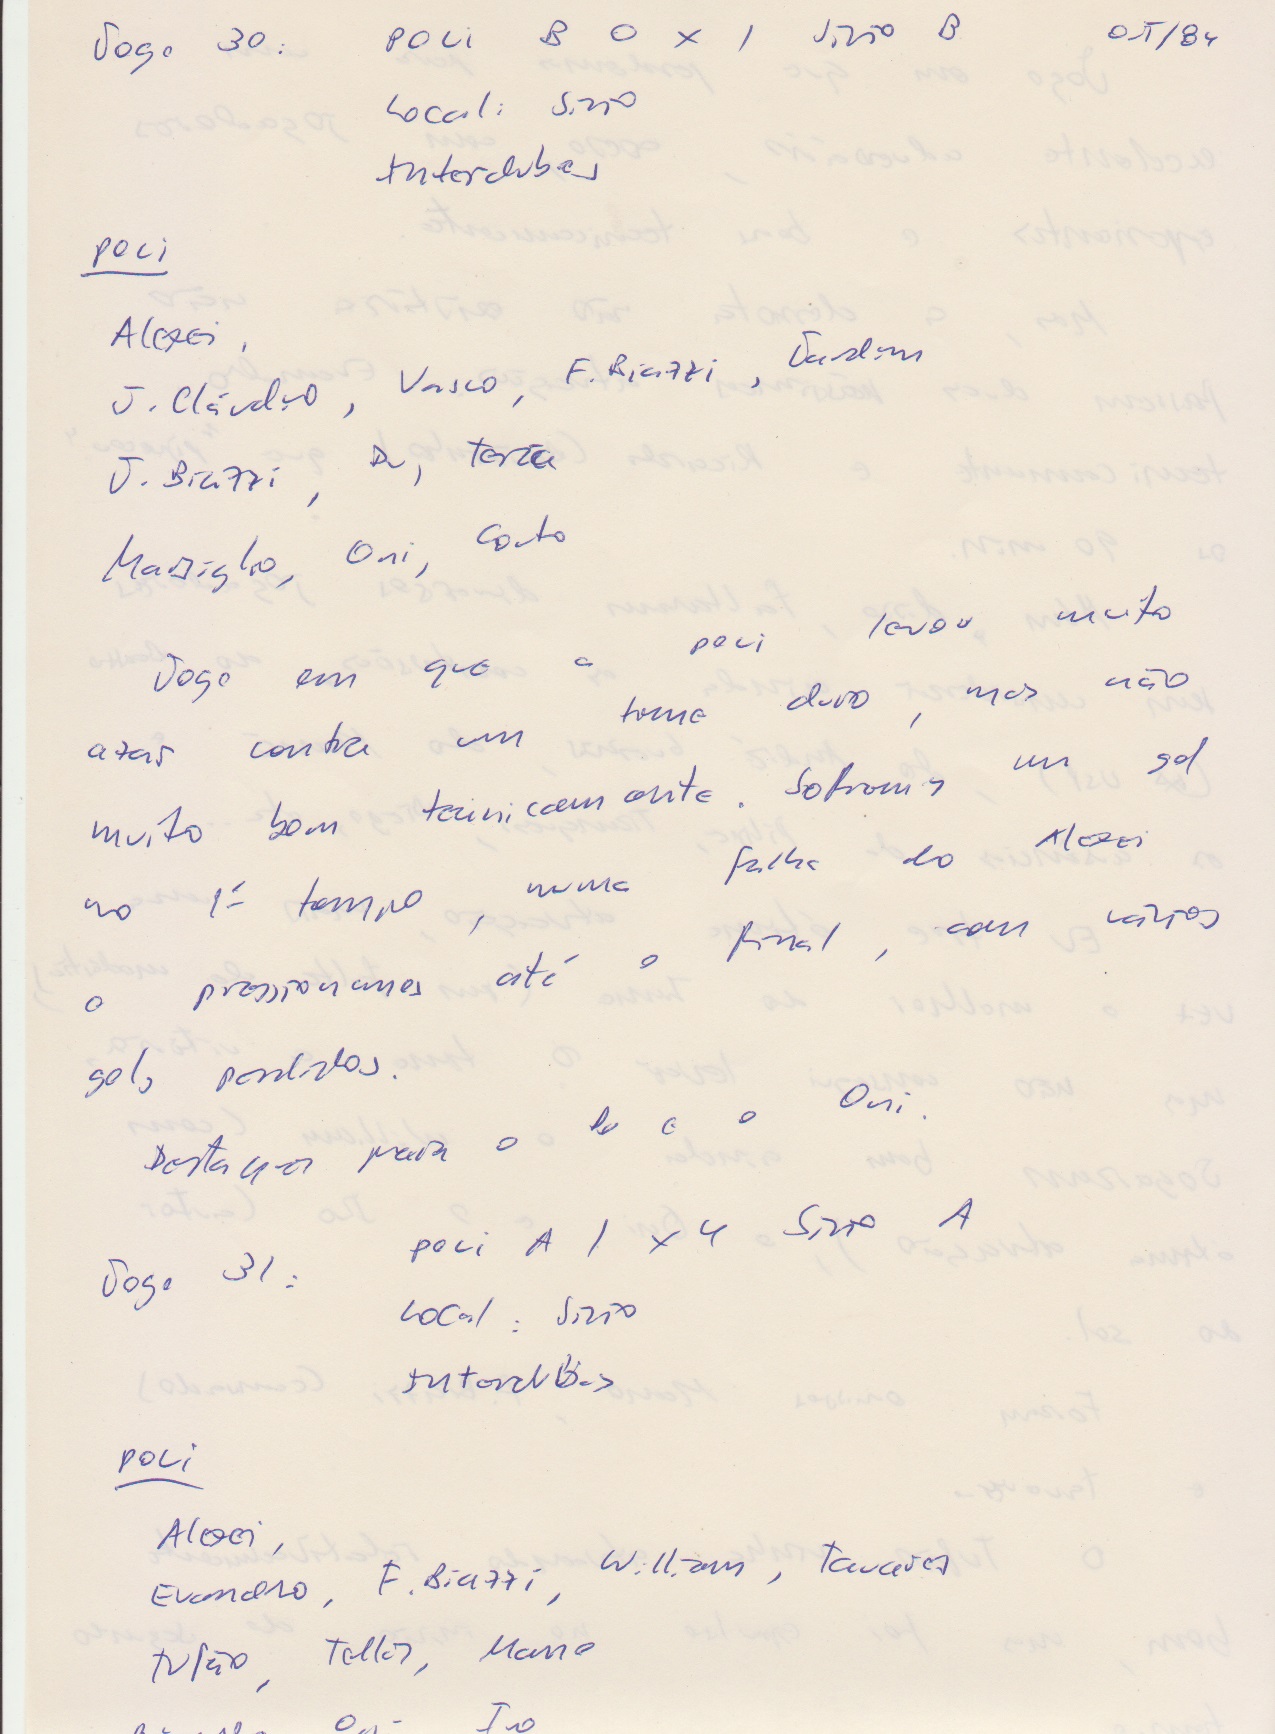 Jogo 30: POLI B 0 x 1 Sírio B 05/84
Local: Sírio
Interclubes
POLI
Alexei,
J. Cláudio, Vasco, F. Biazzi, Jardim
J. Biazzi, Du, Terra
Marsiglio, Oni, Couto
Jogo em que a poli levou muito
azar contra um time duro, mas não
muito bom tecnicamente. Sofremos um gol
no 1º tempo, numa falha do Alexei
e pressionamos até o final, com vários
gols perdidos.
Destaques para o Du e o Oni.
Jogo 31: POLI A 1 x 4 Sírio A
Local: Sírio
Interclubes
POLI
Alexei,
Evandro, F. Biazzi, William, Tavares
Tufão, Telles, Mano
Oni